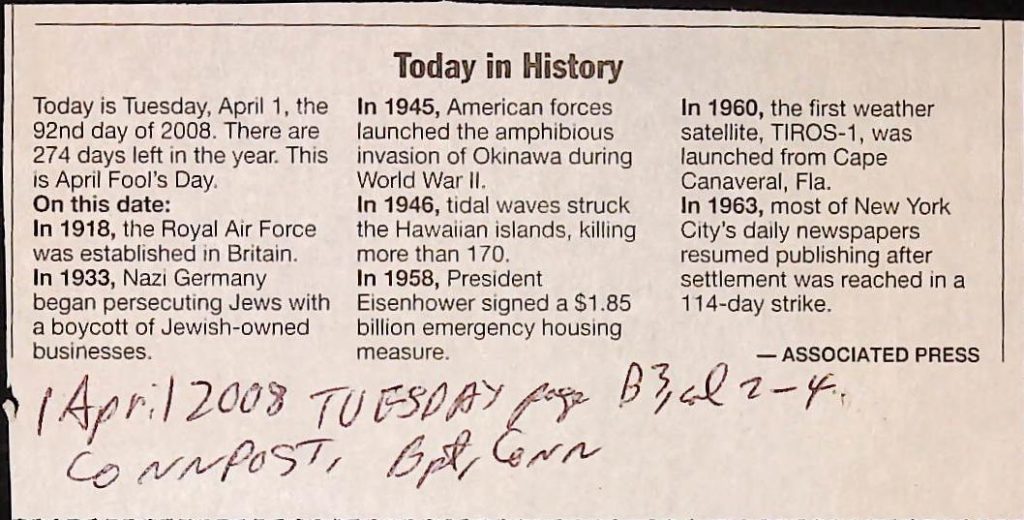 Today in History
Today is Tuesday, April 1, the
92nd day of 2008. There are
274 days left in the year. This
is April Fool's Day.
On this date:
In 1918, the Royal Air Force
was established in Britain.
In 1933, Nazi Germany
began persecuting Jews with
a boycott of Jewish-owned
businesses.
In 1945, American forces
launched the amphibious
invasion of Okinawa during
World War II.
In 1946, tidal waves struck
the Hawaiian islands, killing
more than 170.
In 1958, President
Eisenhower signed a $1.85
billion emergency housing
measure.
In 1960, the first weather
satellite, TIROS-1, was
launched from Cape
Canaveral, Fla.
In 1963, most of New York
City's daily newspapers
resumed publishing after
settlement was reached in a
114-day strike.
— ASSOCIATED PRESS
1 April 2008 TUESDAY page B3, col 2-4.
CONNPOST, Bpt, Conn